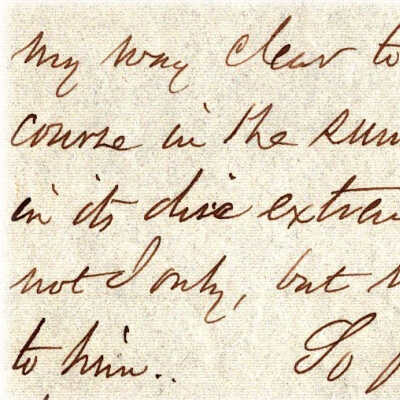 my way clear to
course in the sum
in its dire extrem
not I only, but
to him.. So